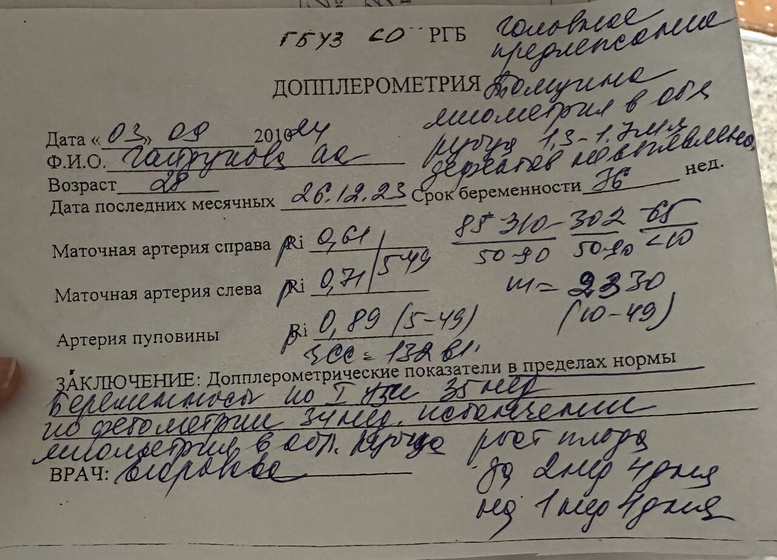 ГБУЗ СО РГБ
головное
предлежание
ДОППЛЕРОМЕТРИЯ
Толщина
миометрия в обл
рубца 1,3-1,7мм
не выявлено,
Дата «03» 09 2010 24
Ф.И.О.
Возраст 28
Дата последних месячных 26.12.23 Срок беременности 36 нед.
Маточная артерия справа pRi 0,61
85 310 302 65
50-90 50-90 <10
Маточная артерия слева pRi 0,71 5-49
m = 2330
(10-49)
Артерия пуповины pRi 0,89 (5-49)
ЧСС = 132
ЗАКЛЮЧЕНИЕ: Допплерометрические показатели в пределах нормы
Беременность по I УЗИ 35 нед
по фетометрии 34 нед. истончение
миометрия в обл. рубца
рост плода
за 2 нед 4 дня
на 1 нед 4 дня
ВРАЧ: